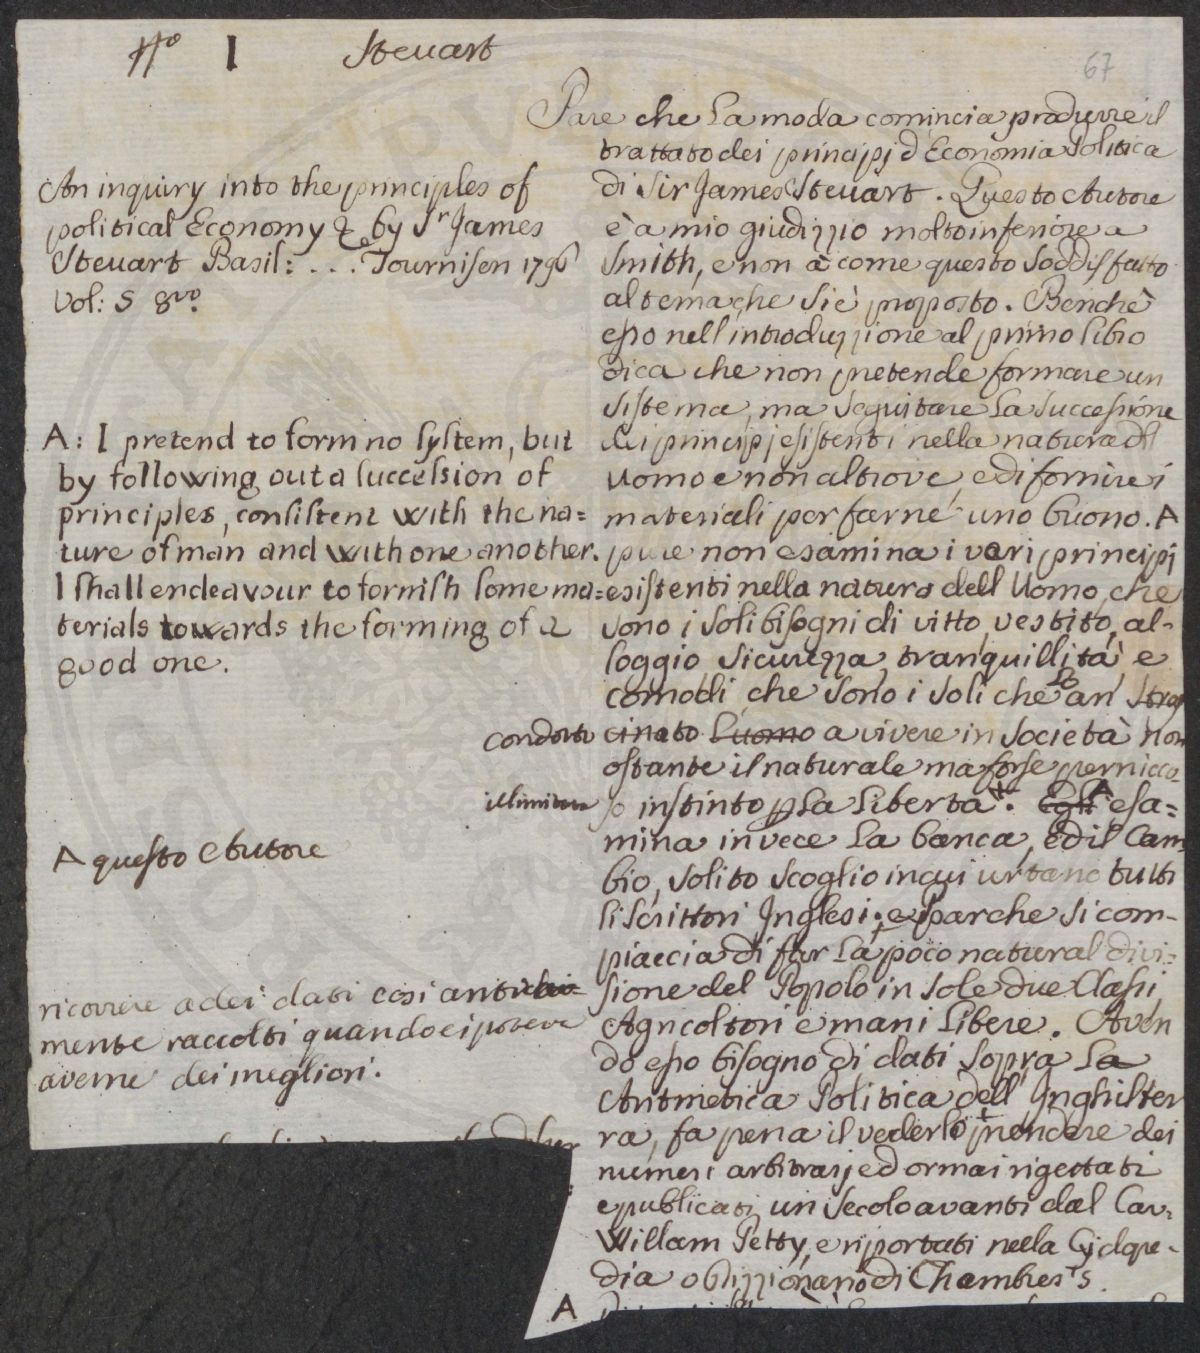 No I Steuart
67
An inquiry into the principles of
political Economy & by Sr James
Steuart Basil: ... Tournisen 1796
Vol: 5 8vo.
A: I pretend to form no system, but
by following out a succession of
principles, consistent with the na=
ture of man and with one another.
I shall endeavour to fornish some ma=
terials towards the forming of a
good one.
condotto
illimitato
A questo Autore
ricorrere a dei dati così antica=
mente raccolti quando ei poteva
averne dei migliori.
Pare che la moda comincia produrre il
trattato dei principj d'Economia Politica
di Sir James Steuart. Questo Autore
è a mio giudizzio molto inferiore a
Smith, e non à come questo soddisfatto
al tema che si è proposto. Benchè
esso nell'introduzzione al primo libro
dica che non pretende formare un
sistema, ma seguitare la successione
dei principj esistenti nella natura dell
Uomo e non altrove, e di fornire i
materiali per farne uno buono. A
pure non esamina i vari principj
esistenti nella natura dell Uomo, che
sono i soli bisogni di vitto, vestito, al-
loggio sicurezza, tranquillità e
comodi che sono i soli che lo an stras
cinato l'uomo a vivere in società non
ostante il naturale ma forse pernicio
so instinto per la libertà. Egli A esa=
mina invece la banca, ed il Cam
bio, solito scoglio in cui urtano tutti
li scrittori Inglesi; e par che si com-
piaccia di far la poco natural divi=
sione del Popolo in sole due Classi,
Agricoltori e mani libere. Aven
do esso bisogno di dati sopra la
Aritmetica Politica dell'Inghilter
ra, fa pena il vederlo prendere dei
numeri arbitrarj ed ormai rigettati
e publicati un secolo avanti dal Cav.
Willam Petty, e riportati nella Ciclope-
dia o Dizzionario di Chambers's.
A